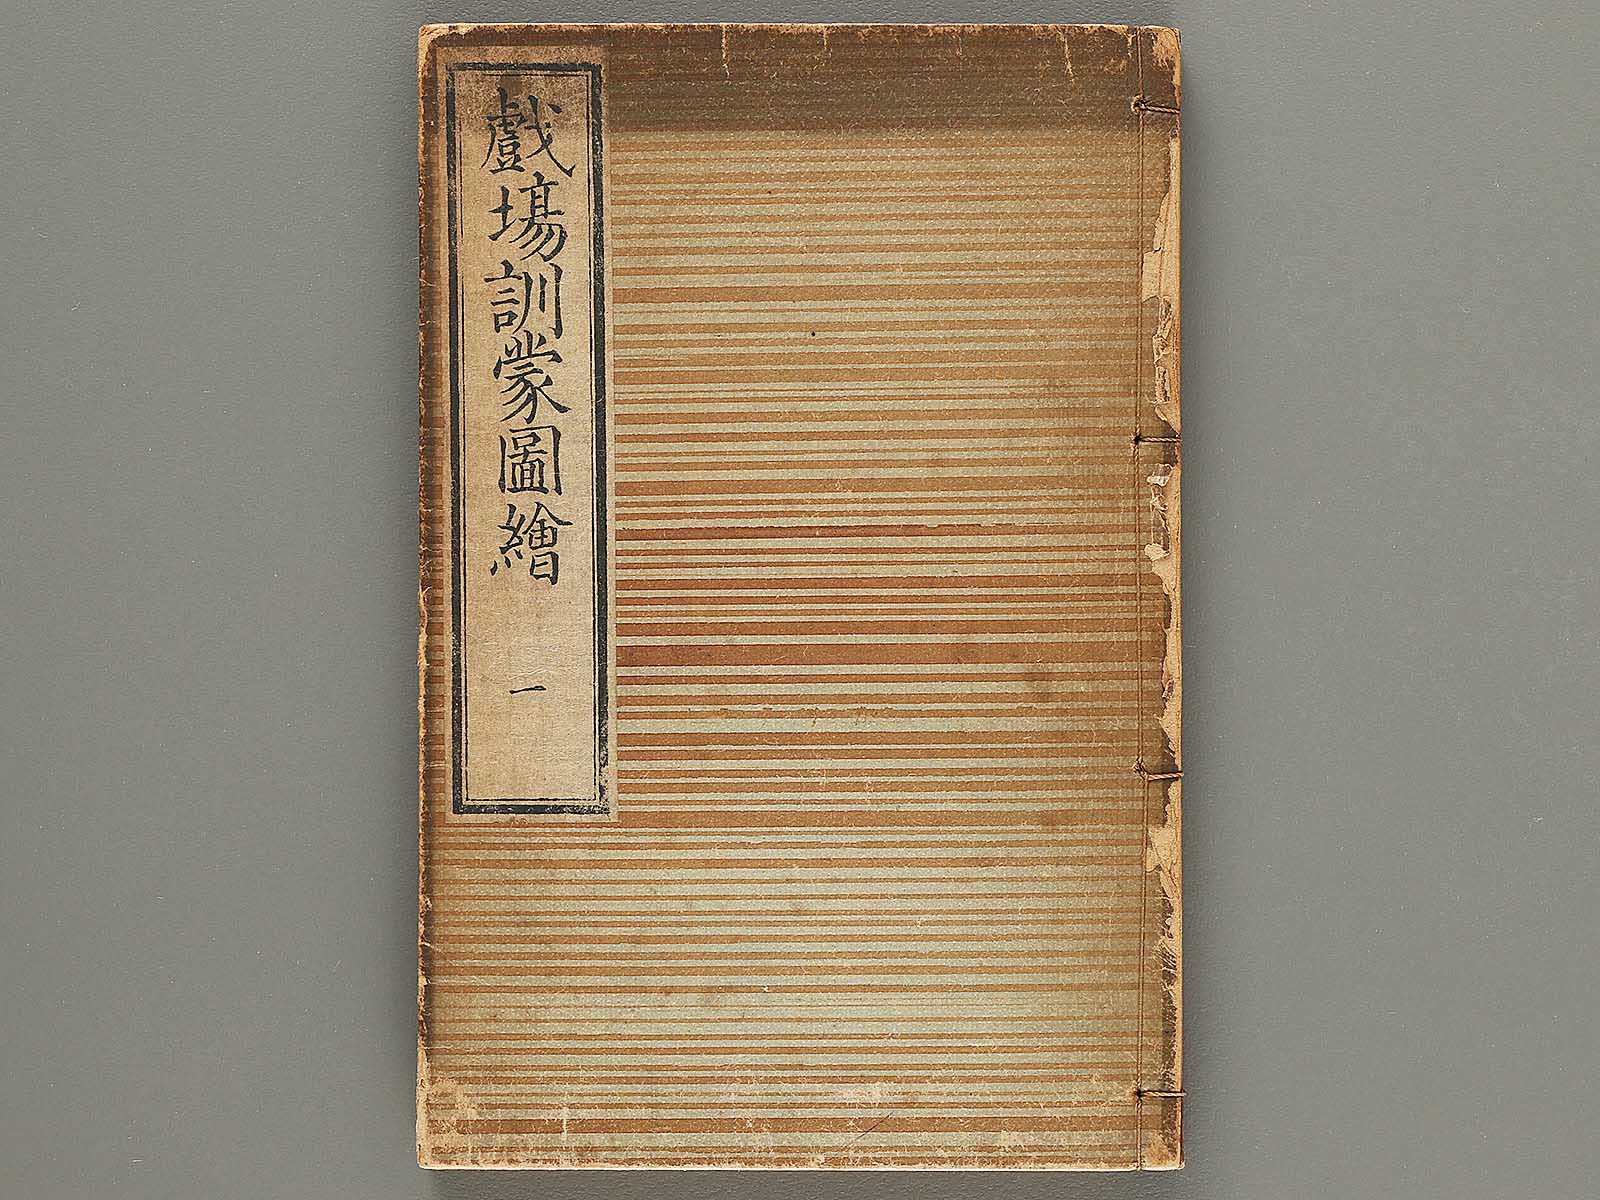 戲場訓蒙圖繪 一